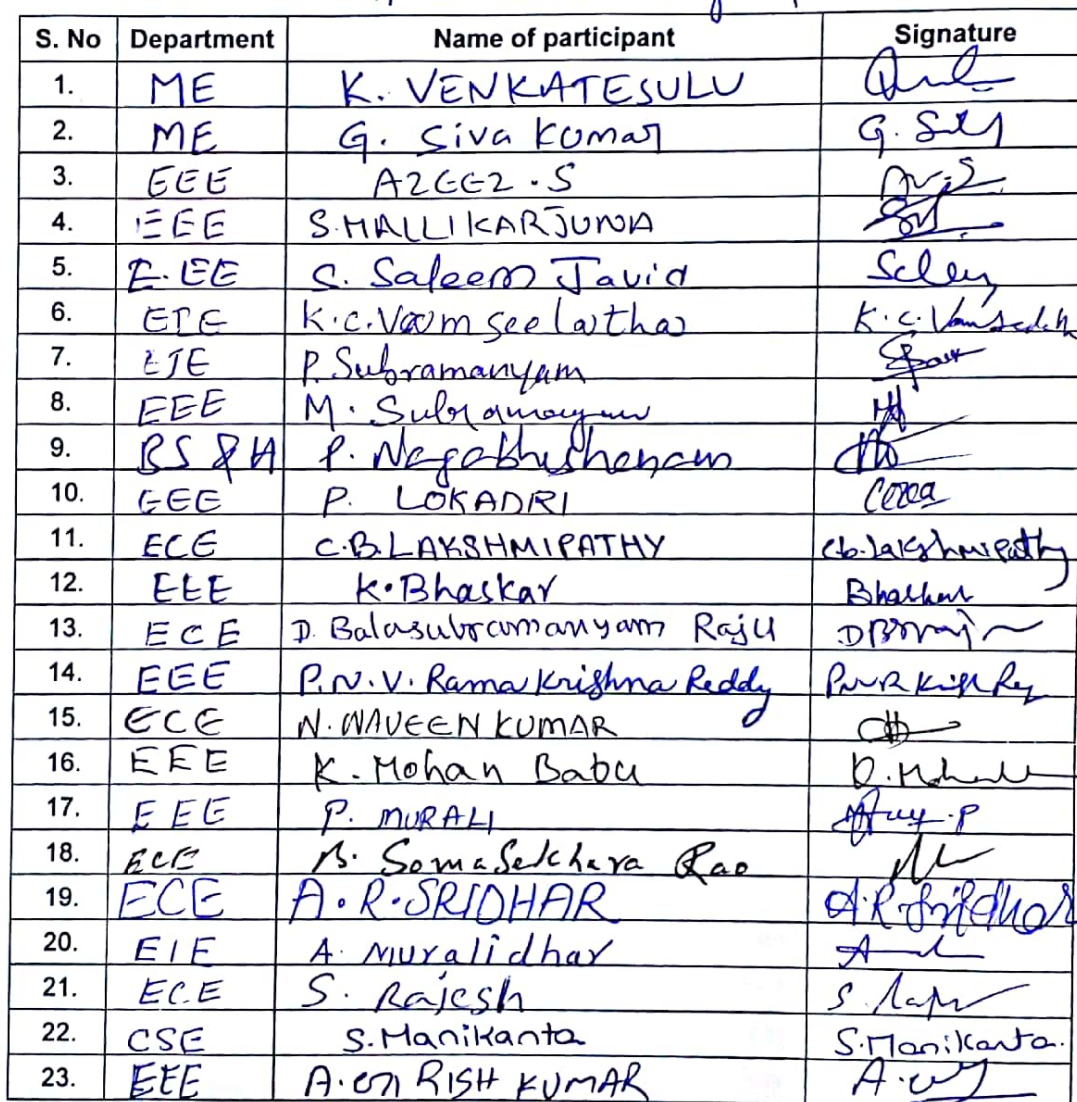 S. No Department Name of participant Signature
1. ME K. VENKATESULU
2. ME G. Siva Kumar G.
3. EEE AZEEZ .S
4. EEE S.MALLIKARJUNA
5. E.EE S. Saleem Javid
6. EIE K.C.Vamseelatha K.C.
7. EIE P. Subramanyam
8. EEE M. Subramanyam
9. BS & H P. Nagabhushanam
10. EEE P. LOKADRI
11. ECE C.B.LAKSHMIPATHY Cb.lakshmipathy
12. EEE K.Bhaskar Bhaskar
13. ECE D. Balasubramanyam Raju
14. EEE P.N.V. Rama Krishna Reddy
15. ECE N. NAVEEN KUMAR
16. EEE K. Mohan Babu
17. EEE P. MURALI
18. ECE B. SomaSekhara Rao
19. ECE A.R.SRIDHAR A.R.Sridhar
20. EIE A. Muralidhar
21. ECE S. Rajesh S.
22. CSE S.Manikanta S.Manikanta.
23. EEE A. RISH KUMAR